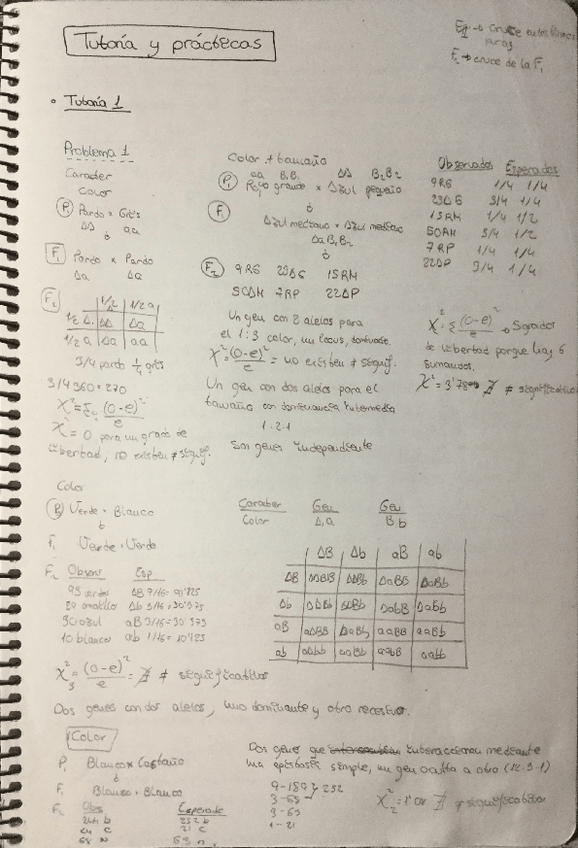 Tutoría y prácticas
F1 → Cruce entre líneas puras
F2 → cruce de la F1
• Tutoría 1
Problema 1
Caracter
Color
P1 Pardo × Gris
AA aa
F1 Pardo × Pardo
Aa Aa
F2
1/2 A 1/2 a
1/2 A AA Aa
1/2 a Aa aa
3/4 pardo 1/4 gris
3/4 360 = 270
X² = Σ (O-e)²
e
X² = 0 para un grado de
libertad, no existen ≠ signif.
Color + tamaño
aa B1B1 AA B2B2
P1 Rojo grande × Azul pequeño
F1
Azul mediano × Azul mediano
Aa B1B2
F2 9RG 23AG 15RM
50AM 7RP 22AP
Un gen con 2 alelos para
el 1:3 color, un locus, dominante.
X² = (O-e)² = no existen ≠ signif.
e
Un gen con dos alelos para el
tamaño con dominancia intermedia
1:2:1
Son genes independiente
Observados Esperados
9RG 1/4 1/4
23AG 3/4 1/4
15RM 1/4 1/2
50AM 3/4 1/2
7RP 1/4 1/4
22AP 3/4 1/4
X² = Σ (O-e)² → 5 grados
e
de libertad porque hay 6
sumandos.
X² = 3'78 ∄ ≠ significativa
Color
P1 Verde × Blanco
F1 Verde × Verde
F2 Observ Esp
95 verdes AB 9/16 = 91'125
Ab 3/16 = 30'375
30 azul aB 3/16 = 30'375
10 blanco ab 1/16 = 10'125
X²3 = (O-e)² = ∄ ≠ significativas
e
Caracter Gen Gen
Color A,a B,b
AB Ab aB ab
AB AABB AABb AaBB AaBb
Ab AABb AAbb AaBb Aabb
aB AaBB AaBb aaBB aaBb
ab AaBb Aabb aaBb aabb
Dos genes con dos alelos, uno dominante y otro recesivo.
Color
P1 Blanco × Castaño
F1 Blanco × Blanco
F2 Obs Esperado
b 252 b
c 21 c
68 N 63 n
Dos genes que interaccionan mediante
una epistasis simple, un gen oculta a otro (12:3:1)
9-189 252
3-63
3-63
1-21
∄ ≠ significativa